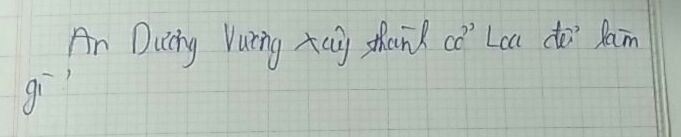 An Dương Vương xây thành cổ Loa để làm
gì